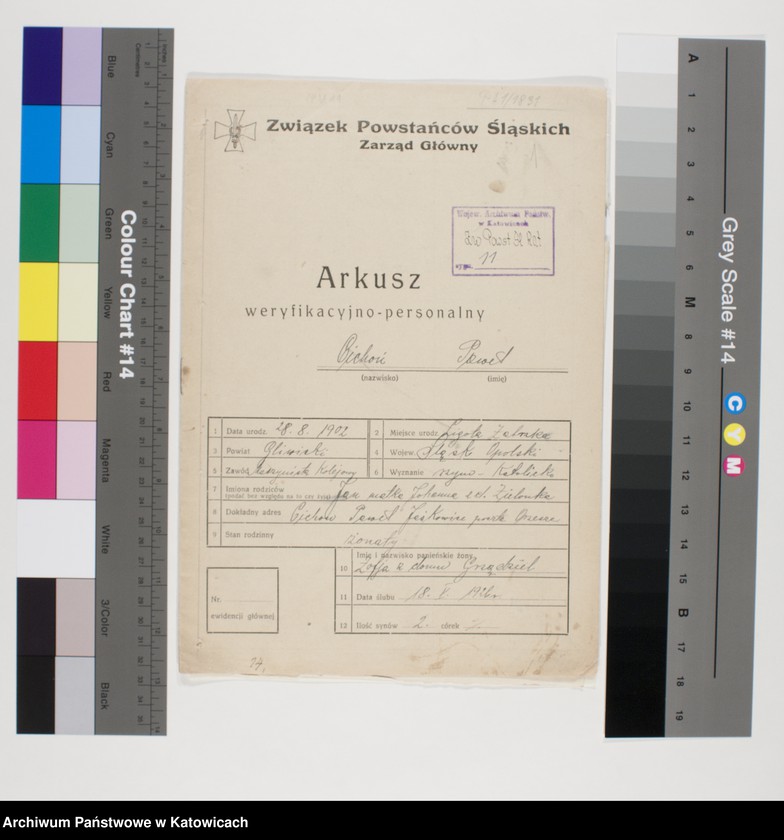 Związek Powstańców Śląskich
Zarząd Główny
Wojew. Archiwum Państw.
w Katowicach
sygn. 11
Arkusz
weryfikacyjno-personalny
Cichoń Paweł
(nazwisko) (imię)
1 Data urodz. 28. 8. 1902 2 Miejsce urodz. Ligota Zabrska
3 Powiat Gliwicki 4 Wojew. Śląsk Opolski
5 Zawód Kolejowy 6 Wyznanie rzym - Katolickie
7 Imiona rodziców Jan matka Johanna z d. Zielonka
(podać bez względu na to czy żyją)
8 Dokładny adres Cichoń Paweł Jaśkowice poczt. Orzesze
9 Stan rodzinny żonaty
Imię i nazwisko panieńskie żony
10 Zofja z domu
11 Data ślubu 18. V 1926r.
12 Ilość synów 2. córek
Nr.
ewidencji głównej
Colour Chart #14
Blue
Cyan
Green
Yellow
Red
Magenta
White
3/Color
Black
Centimetres
Inches
Grey Scale #14
C
Y
M
A
1
2
3
4
5
6
M
8
9
10
11
12
13
14
15
B
17
18
19
Archiwum Państwowe w Katowicach